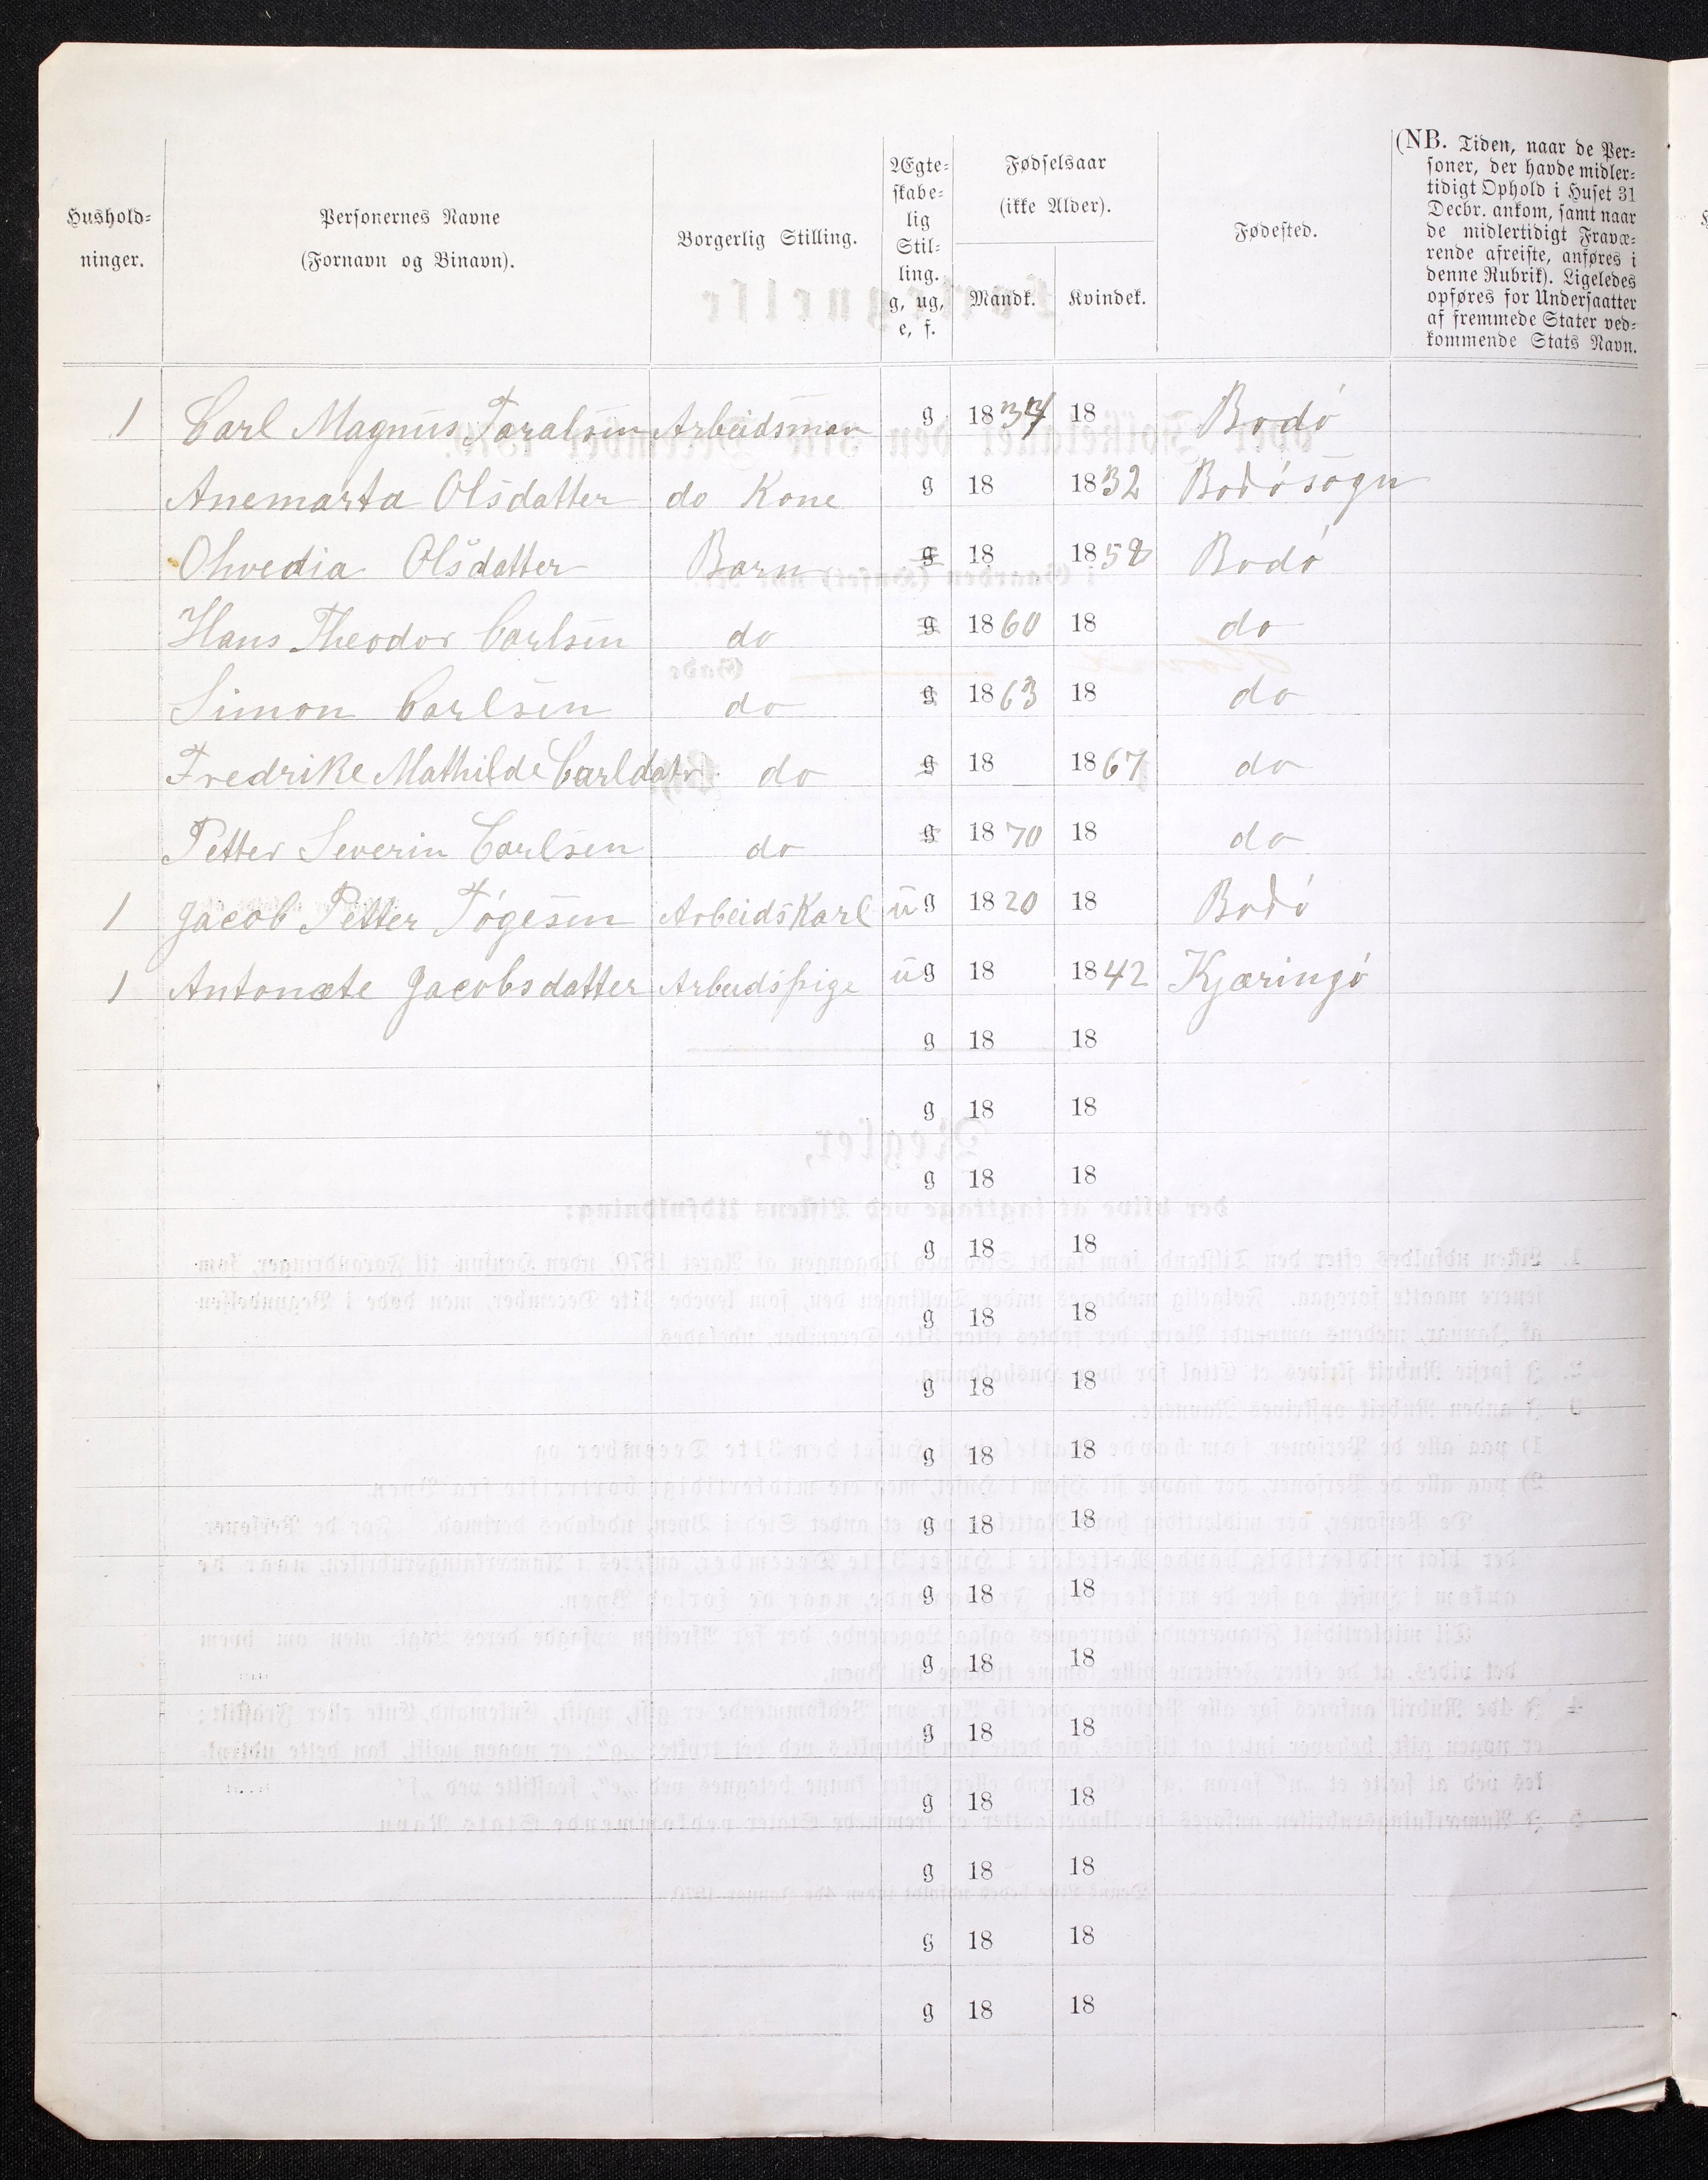 Hushold-
ninger.
Personernes Navne
(Fornavn og Binavn).
Borgerlig Stilling.
Ægte-
skabe-
lig
Stil-
ling.
g, ug,
e, f.
Fødselsaar
(ikke Alder).
Mandk. Kvindek.
Fødested.
(NB. Tiden, naar de Per-
soner, der havde midler-
tidigt Ophold i Huset 31
Decbr. ankom, samt naar
de midlertidigt Fravæ-
rende afreiste, anføres i
denne Rubrik). Ligeledes
opføres for Undersaatter
af fremmede Stater ved-
kommende Stats Navn.
1 Carl Magnus Taralsen Arbeidsman g 1834 18 Bodó
Anemarta Olsdatter do Kone g 18 1832 Bodósogn
Olsdatter Barn g 18 1858 Bodó
Hans Theodor Carlsen do g 1860 18 do
Simon Carlsen do g 1863 18 do
Fredrike Mathilde Carldatr do g 18 1867 do
Petter Severin Carlsen do g 1870 18 do
1 Jacob Petter Tógesen Arbeidskarl ug 1820 18 Bodó
1 Antonæte Jacobsdatter Arbeidspige ug 18 1842 Kjæringó
g 18 18
g 18 18
g 18 18
g 18 18
g 18 18
g 18 18
g 18 18
g 18 18
g 18 18
g 18 18
g 18 18
g 18 18
g 18 18
g 18 18
g 18 18